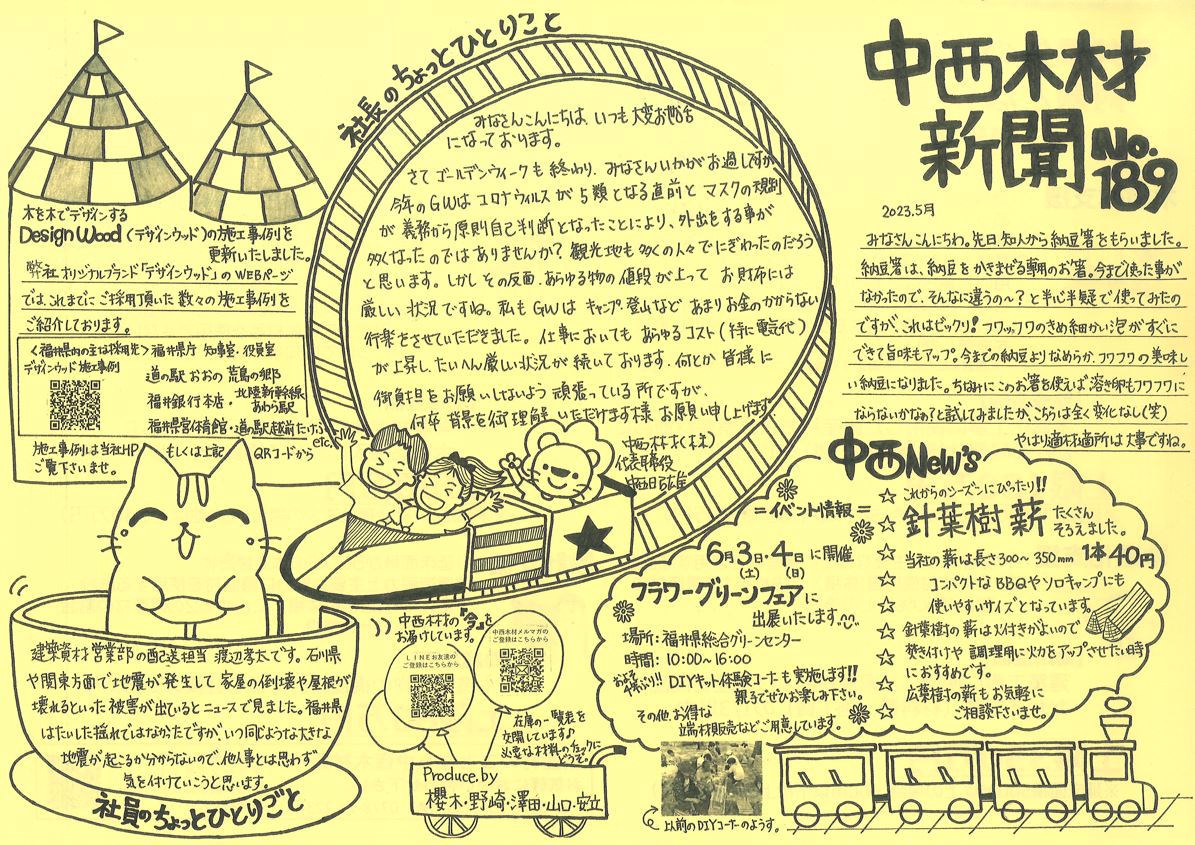 中西木材
新聞 No.
189
2023.5月
みなさんこんにちわ。先日、知人から納豆箸をもらいました。
納豆箸は、納豆をかきまぜる専用のお箸。今まで使った事が
なかったので、そんなに違うの〜？と半心半疑で使ってみたの
ですが、これはビックリ！フワッフワのきめ細かい泡がすぐに
できて旨味もアップ。今までの納豆よりなめらか、フワフワの美味し
い納豆になりました。ちなみにこのお箸を使えば溶き卵もフワフワに
ならないかなぁ？と試してみましたが、こちらは全く変化なし(笑)
やはり適材適所は大事ですね。
社長のちょっとひとりごと
みなさんこんにちは、いつも大変お世話
になっております。
さてゴールデンウィークも終わり、みなさんいかがお過しですか
今年のGWはコロナウィルスが5類となる直前とマスクの規制
が義務から原則自己判断となったことにより、外出をする事が
多くなったのではありませんか？観光地も多くの人々でにぎわったのだろう
と思います。しかしその反面、あらゆる物の値段が上って お財布には
厳しい状況ですね。私もGWはキャンプ、登山など あまりお金のかからない
行楽をさせていただきました。仕事においても あらゆるコスト(特に電気代)
が上昇し、たいへん厳しい状況が続いております。何とか皆様に
御負担をお願いしないよう頑張っている所ですが、
何卒 背景を御理解いただけます様 お願い申し上げます。
中西木材(株)
代表取締役
木を木でデザインする
Design Wood (デザインウッド)の施工事例を
更新いたしました。
弊社オリジナルブランド「デザインウッド」のWEBページ
では、これまでにご採用頂いた数々の施工事例を
ご紹介しております。
<福井県内の主な採用先> 福井県庁 知事室・役員室
デザインウッド施工事例
道の駅 おおの 荒島の郷
福井銀行本店・北陸新幹線
あわら駅
福井県営体育館・道の駅越前たけふ
etc.
施工事例は当社HP もしくは上記 QRコードから
ご覧下さいませ。
建築資材営業部の配送担当 渡辺孝太です。石川県
や関東方面で地震が発生して 家屋の倒壊や屋根が
壊れるといった被害が出ているとニュースで見ました。福井県
はたいした揺れではなかたですが、いつ同じような大きな
地震が起こるか分からないので、他人事とは思わず
気を付けていこうと思います。
社員のちょっとひとりごと
中西木材の「今」を
お届けしています。
LINEお友達の
ご登録はこちらから
中西木材メルマガの
ご登録はこちらから
在庫の一覧表を
公開しています♪
必要な材料のチェックに
どうぞ。
Produce.by
櫻木・野崎・澤田・山口・安立
中西New's
=イベント情報=
6月3日・4日に開催
(土) (日)
フラワーグリーンフェアに
出展いたします
場所：福井県総合グリーンセンター
時間：10:00〜16:00
およそ
4年ぶり!! DIYキット体験コーナーも実施します!!
親子でぜひお楽しみ下さい。
その他、お得な
端材販売などご用意しています。
以前のDIYコーナーのようす。
☆ これからのシーズンにぴったり!!
☆ 針葉樹 薪 たくさん
そろえました。
☆ 当社の薪は長さ300〜350mm 1本40円
☆ コンパクトなBBQやソロキャンプにも
☆ 使いやすいサイズとなっています。
☆ 針葉樹の薪は火付きがよいので
☆ 焚き付けや調理用に火力をアップさせたい時
☆ におすすめです。
☆ 広葉樹の薪もお気軽に
☆ ご相談下さいませ。